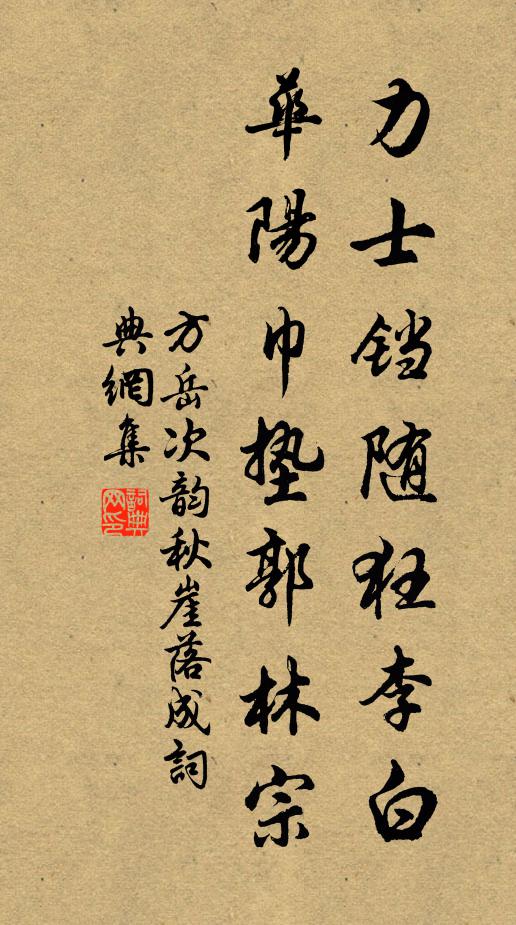 力士铛随狂李白
華陽巾墊郭林宗
方岳次韵秋崖落成詞
典網集
詞典網印